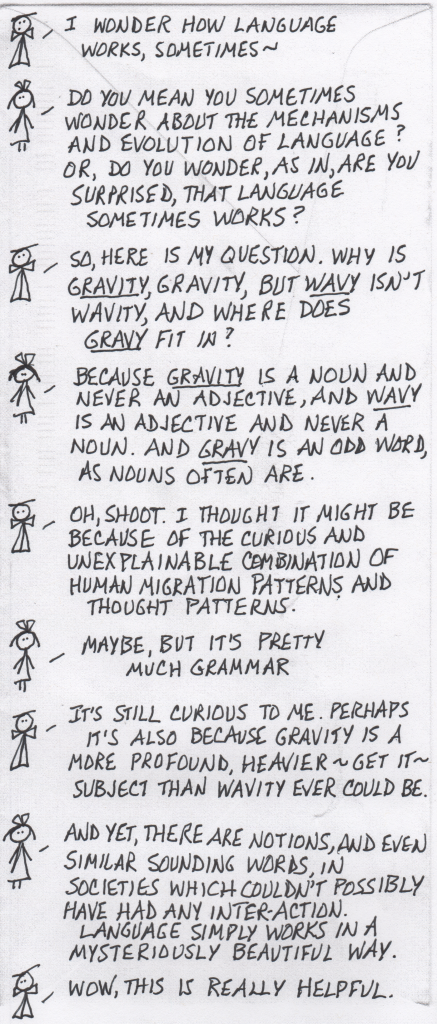 I WONDER HOW LANGUAGE
WORKS, SOMETIMES~
DO YOU MEAN YOU SOMETIMES
WONDER ABOUT THE MECHANISMS
AND EVOLUTION OF LANGUAGE?
OR, DO YOU WONDER, AS IN, ARE YOU
SURPRISED, THAT LANGUAGE
SOMETIMES WORKS?
SO, HERE IS MY QUESTION. WHY IS
GRAVITY, GRAVITY, BUT WAVY ISN'T
WAVITY, AND WHERE DOES
GRAVY FIT IN?
BECAUSE GRAVITY IS A NOUN AND
NEVER AN ADJECTIVE, AND WAVY
IS AN ADJECTIVE AND NEVER A
NOUN. AND GRAVY IS AN ODD WORD,
AS NOUNS OFTEN ARE.
OH, SHOOT. I THOUGHT IT MIGHT BE
BECAUSE OF THE CURIOUS AND
UNEXPLAINABLE COMBINATION OF
HUMAN MIGRATION PATTERNS AND
THOUGHT PATTERNS.
MAYBE, BUT IT'S PRETTY
MUCH GRAMMAR
IT'S STILL CURIOUS TO ME. PERHAPS
IT'S ALSO BECAUSE GRAVITY IS A
MORE PROFOUND, HEAVIER~GET IT~
SUBJECT THAN WAVITY EVER COULD BE.
AND YET, THERE ARE NOTIONS, AND EVEN
SIMILAR SOUNDING WORDS, IN
SOCIETIES WHICH COULDN'T POSSIBLY
HAVE HAD ANY INTER-ACTION.
LANGUAGE SIMPLY WORKS IN A
MYSTERIOUSLY BEAUTIFUL WAY.
WOW, THIS IS REALLY HELPFUL.